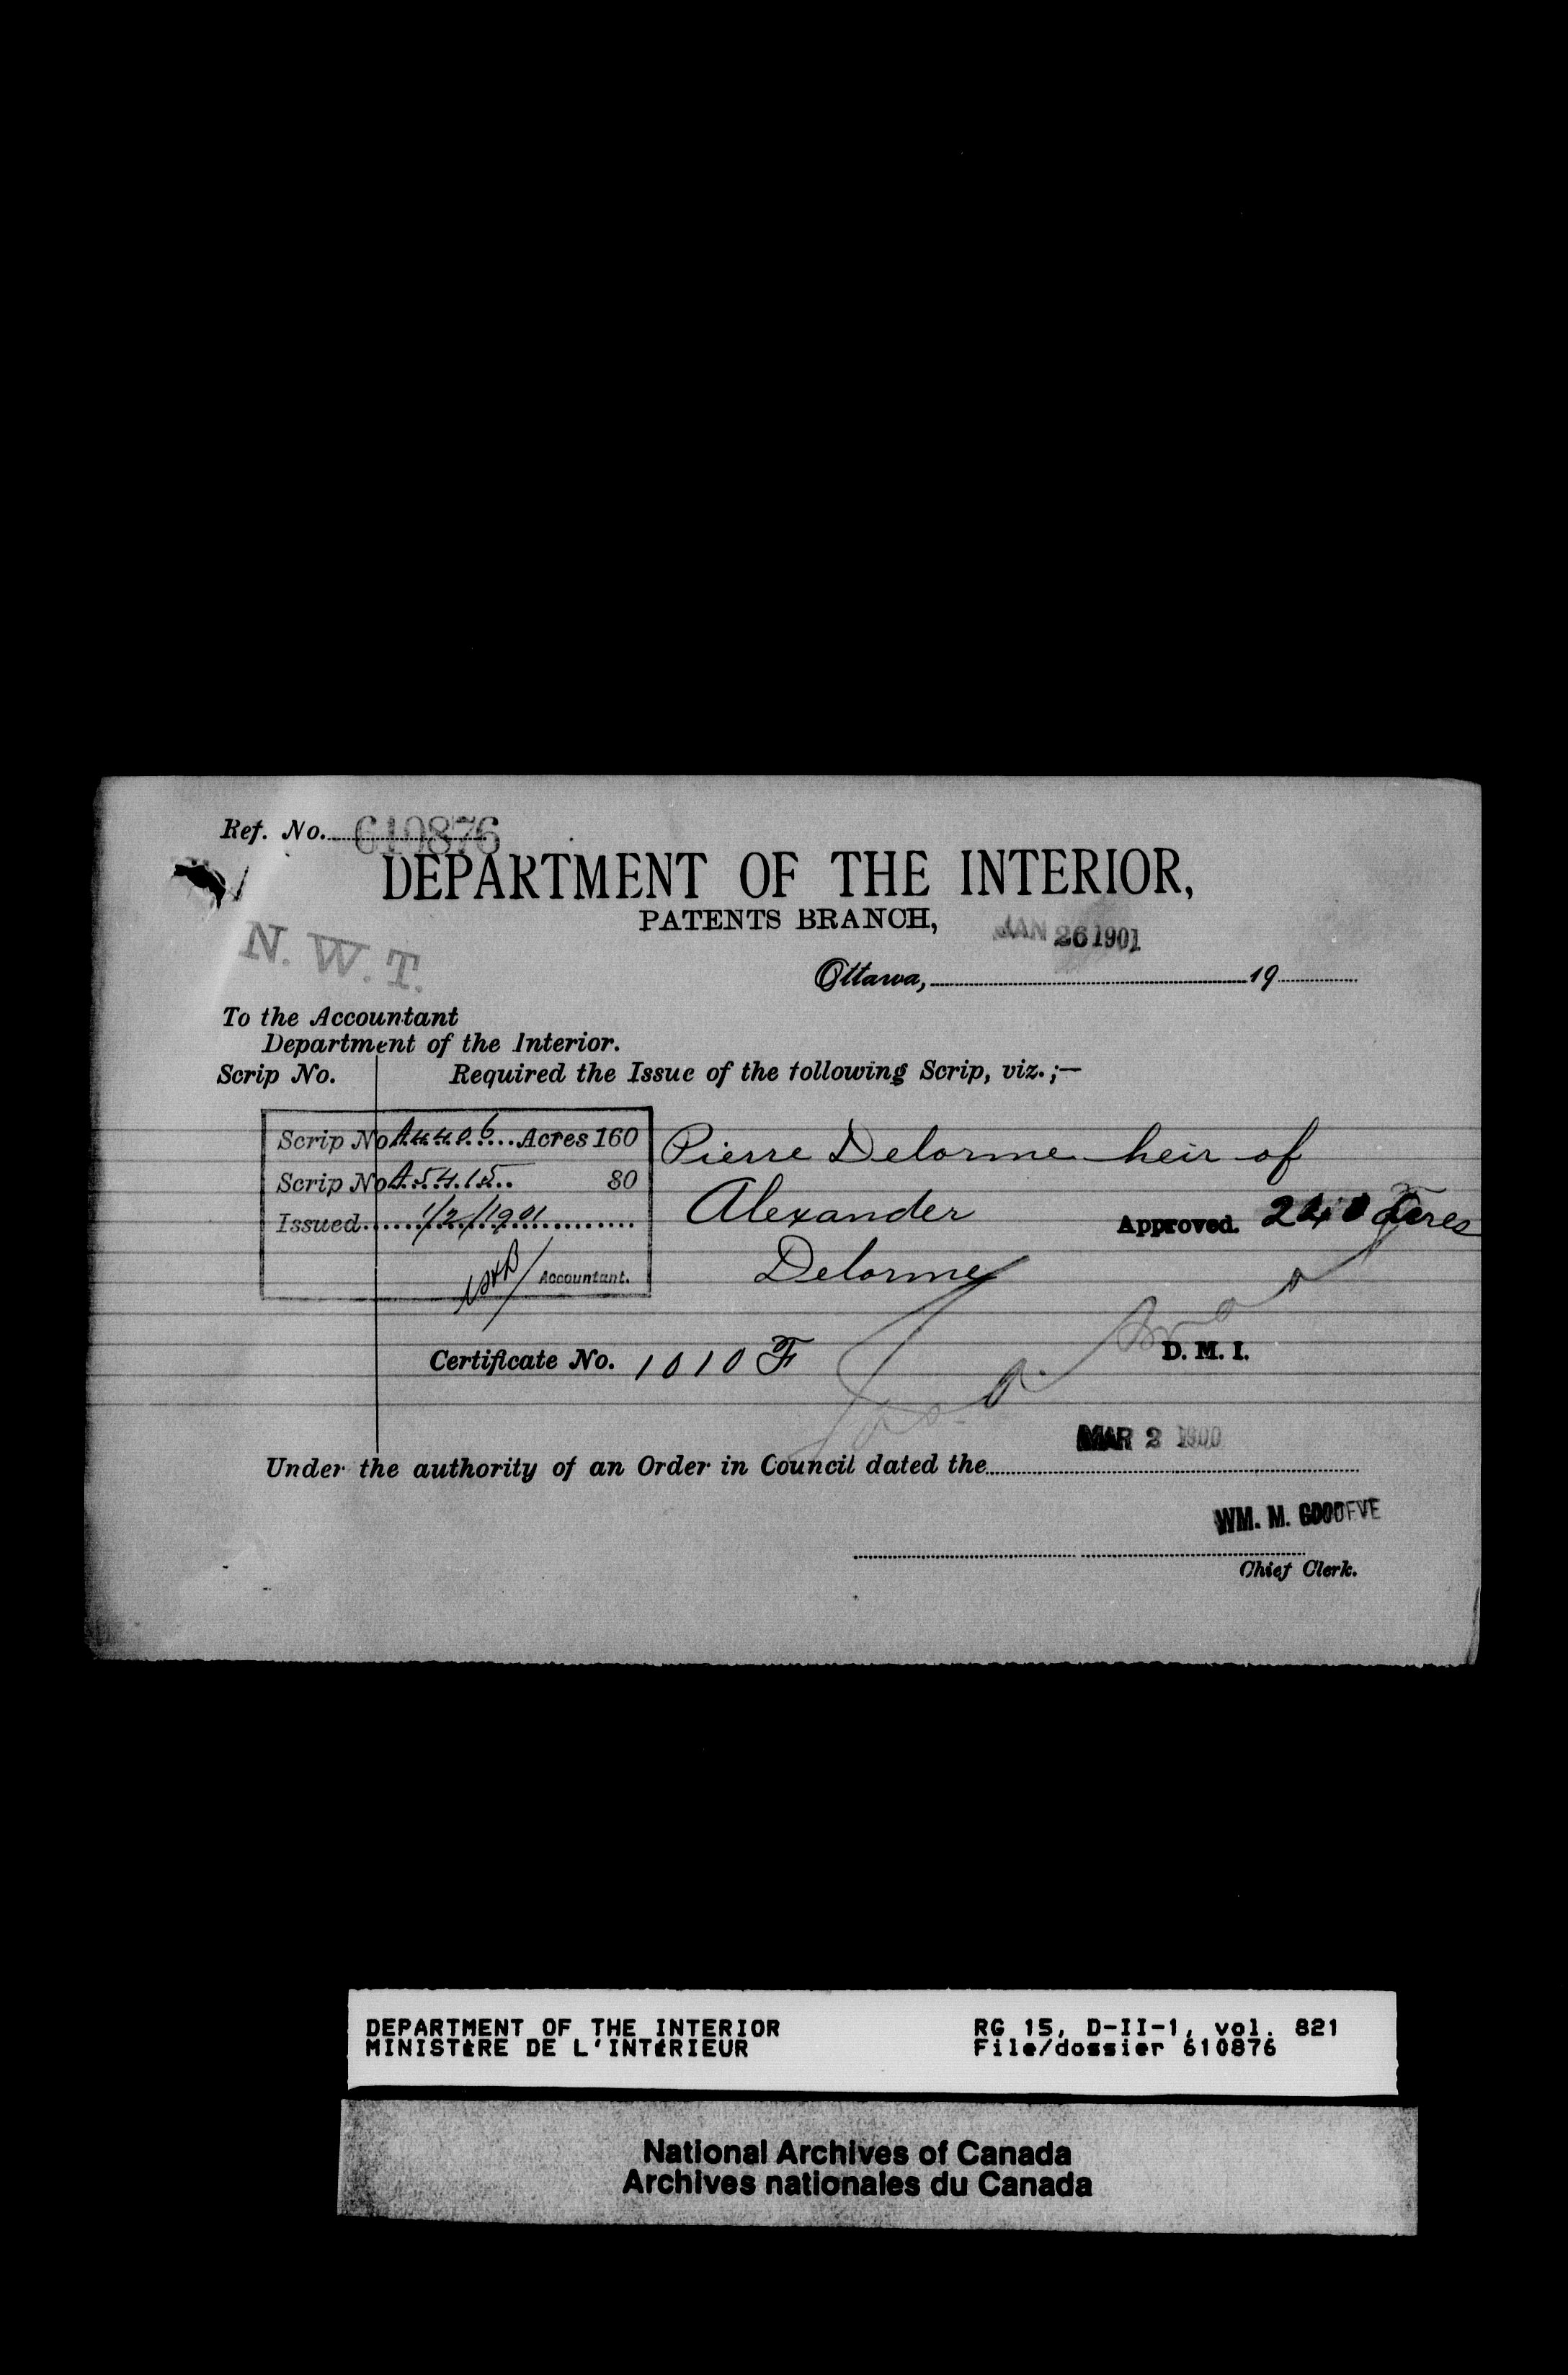 Ref. No. 610876
DEPARTMENT OF THE INTERIOR,
PATENTS BRANCH,
JAN 26 1901
N. W. T.
Ottawa, 19
To the Accountant
Department of the Interior.
Scrip No. Required the Issue of the following Scrip, viz.;—
Scrip No A4406 Acres 160
Scrip No A5415 80
Issued 1/2/1901
Accountant.
Pierre Delorme heir of
Alexander
Delorme
Approved. 240 Acres
D. M. I.
Certificate No. 1010 F
MAR 2 1900
Under the authority of an Order in Council dated the
WM. M. GOODEVE
Chief Clerk.
DEPARTMENT OF THE INTERIOR
MINISTÈRE DE L'INTÉRIEUR
RG 15, D-II-1, vol. 821
File/dossier 610876
National Archives of Canada
Archives nationales du Canada